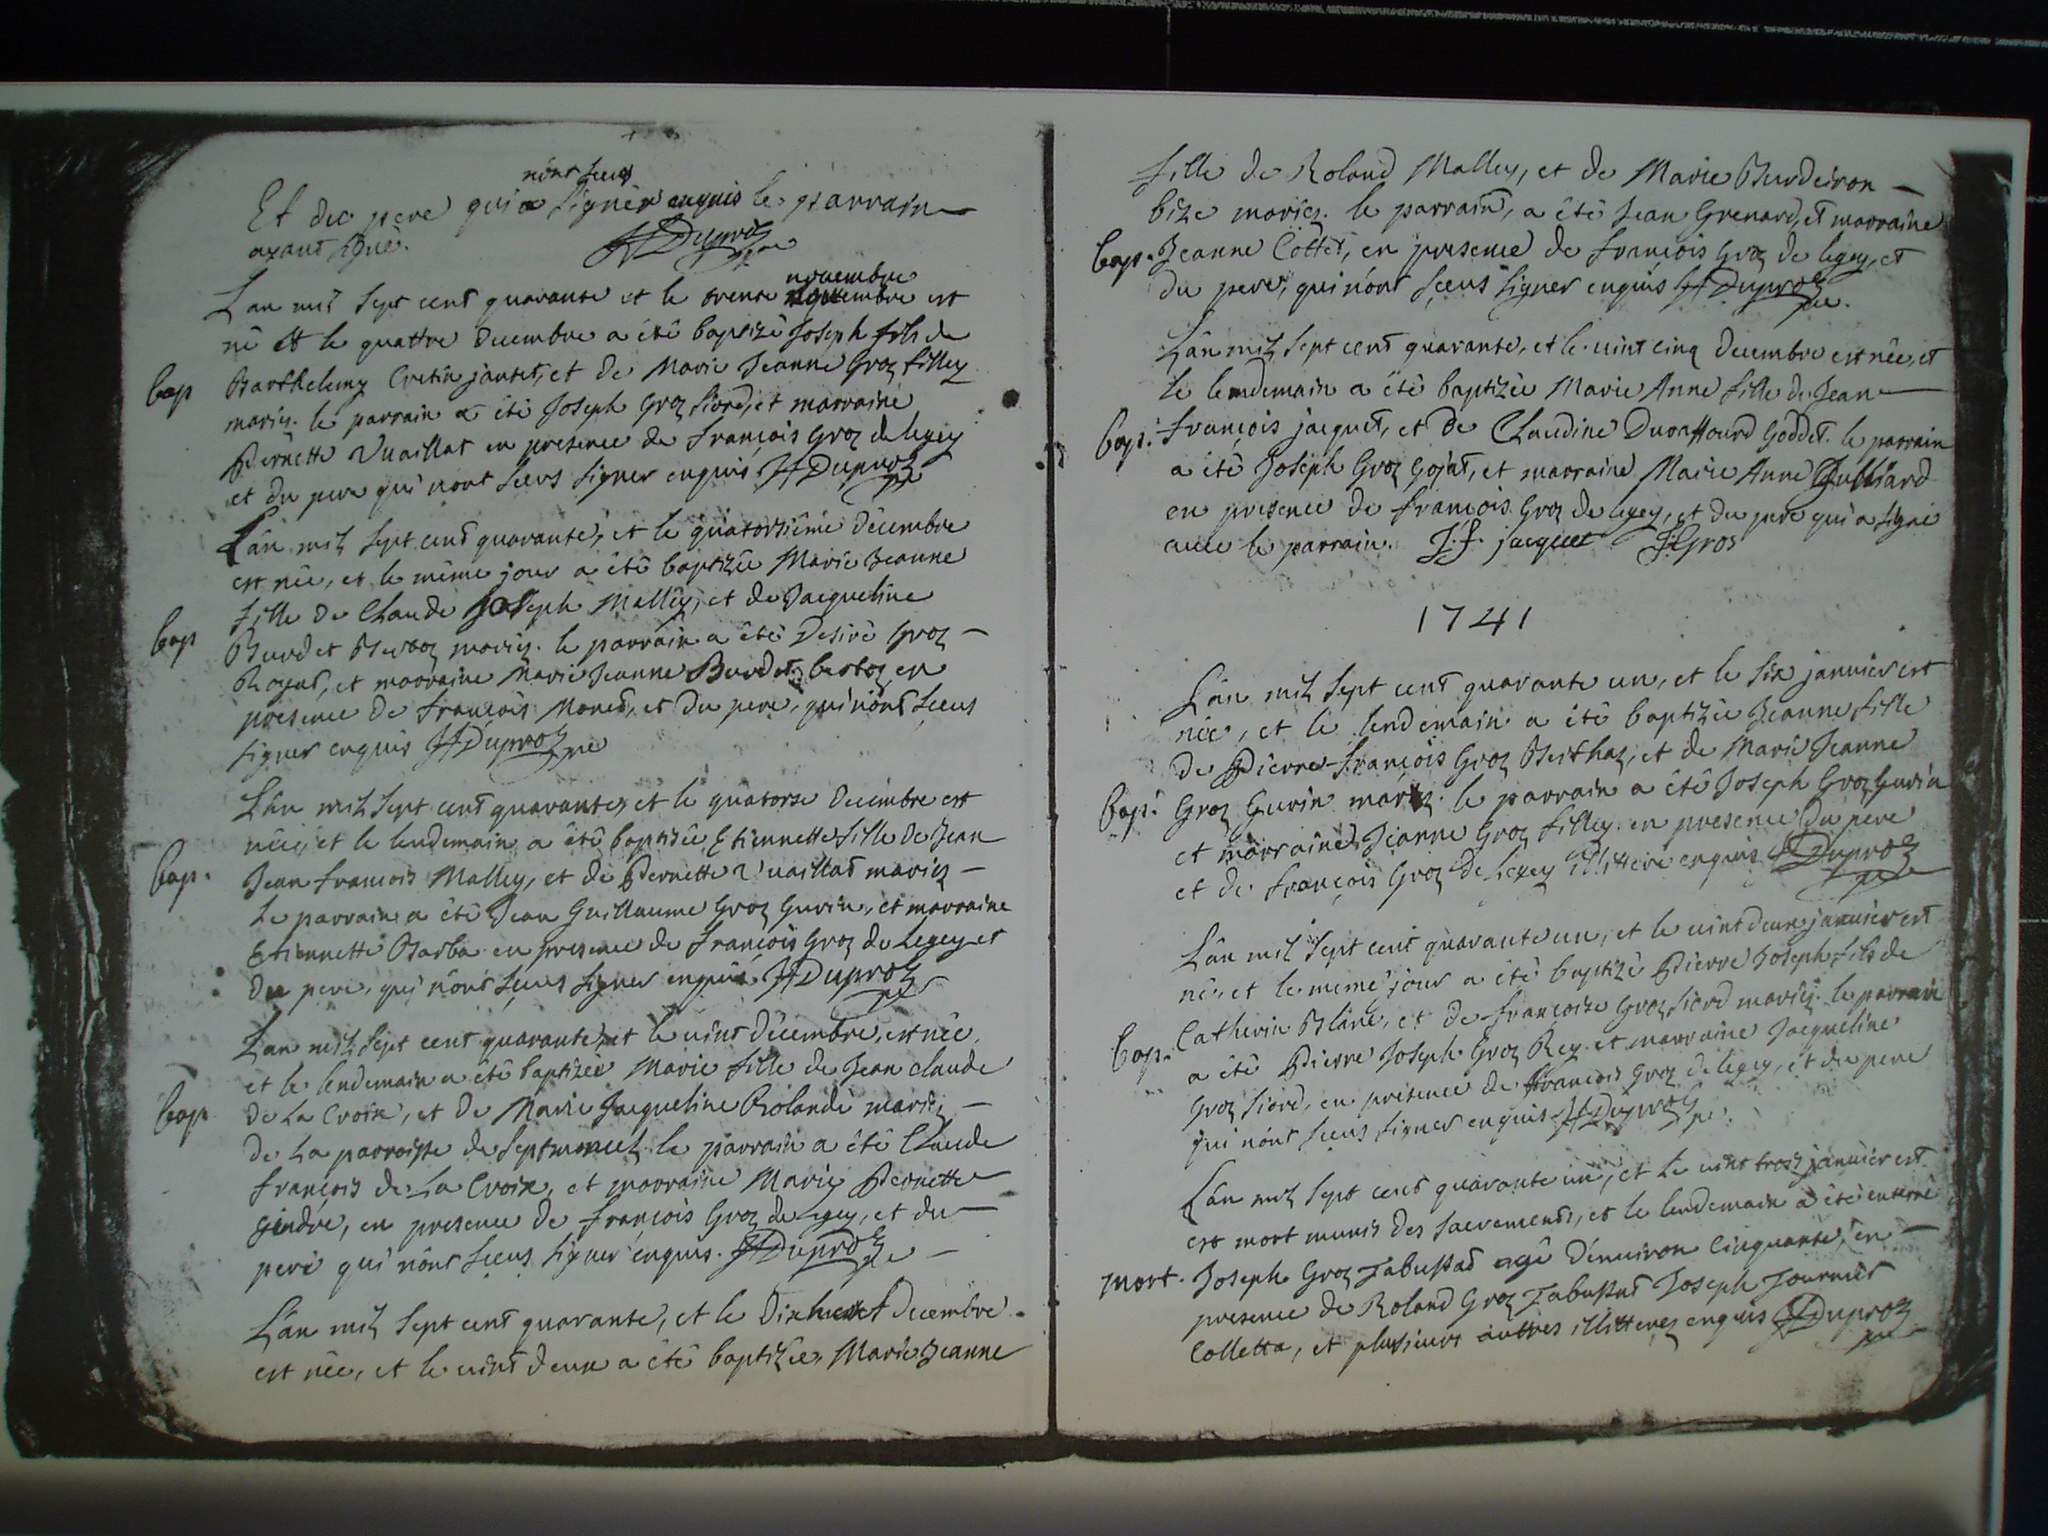 nönt sceus
Et du pere qui a signer enquis le parrain
ayant signé. Duproz
novembre
L'an mil sept cent quarante et le trente est
né et le quattre decembre a été baptizé Joseph fils de
bap Barthelemy Cretin jantet, et de Marie Jeanne Groz filley
mariez. le parrain a été Joseph Groz siord, et marraine
Pernette Vuaillat en presence de françois Groz de legey
et du pere qui nont sceus signer enquis Duproz
L'an mil sept cent quarante, et le quatorsiéme décembre
est née, et le même jour a été baptizée Marie Jeanne
fille de Claude Joseph Malley, et de Jacqueline
bap Burdet Berboz mariez. le parrain a été Desiré Groz
Royat, et marraine Marie Jeanne Burdet en
presence de françois Monet, et du pere, qui nönt sceus
signer enquis Duproz
L'an mil sept cent quarante, et le quatorse decembre est
née, et le lendemain a été baptisée Etiennette fille de Jean
bap. Jean francois Malley, et de Pernette Vuaillat mariez
Le parrain a été Jean Guillaume Groz Gurin, et marraine
Etiennette Barba en presence de françois Groz de Legey et
du pere, qui nönt sceus signer enquis Duproz
L'an mil sept cent quarante, et le vint décembre, est née
et le lendemain a été baptizée Marie fille de Jean claude
bap de La Croix, et de Marie Jacqueline Rolande mariez
de La parroisse de Septmoncel. le parrain a été Claude
françois de La Croix, et marraine Marie Pernette
gindre, en presence de françois Groz de Legey, et du
pere qui nönt sceus signer enquis. Duproz
L'an mil sept cent quarante, et le Dixhuict decembre
est née, et le vint deux a été baptizée, Marie Jeanne
fille de Roland Malley, et de Marie Burdeiron
bize mariez. le parrain, a été Jean Grenard, et marraine
bap. Jeanne Cottet, en presence de françois Groz de legey, et
du pere, qui nönt sceus signer enquis Duproz
L'an mil sept cent quarante, et le vint cinq decembre est née, et
Le lendemain a été baptizée Marie Anne fille de Jean
bap. françois jacquet, et de Claudine Duraffourd Goddet. le parrain
a été Joseph Groz Gojat, et marraine Marie Anne Julliard
en presence de françois Groz de legey, et du pere qui a signé
avec le parrain. J. f. jacquet J. Gros
1741
L'an mil sept cent quarante un, et le six janvier est
née, et le lendemain a été baptizée Jeanne fille
de Pierre-françois Groz Berthaz, et de Marie Jeanne
bap. Groz Gurin mariez. le parrain a été Joseph Groz Gurin
et marraine Jeanne Groz filley en presence du pere
et de françois Groz de Legey illitteré enquis Duproz
L'an mil sept cent quarante un, et le vint deux janvier est
né, et le même jour a été baptizé Pierre Joseph fils de
bap. Catherin Blanc, et de françoise Groz siord mariez. le parrain
a été Pierre Joseph Groz Rey et marraine Jacqueline
Groz siord, en presence de françois Groz de legey, et du pere
qui nönt sceus signer enquis Duproz
L'an mil sept cent quarante un, et le vint trois janvier est
est mort munis des sacrements, et le lendemain a été enterré
mort. Joseph Groz Tabussat agé d'environ Cinquante, en
presence de Roland Groz Tabussat Joseph Tournier
Colletta, et plusieurs auttres illitterez enquis Duproz